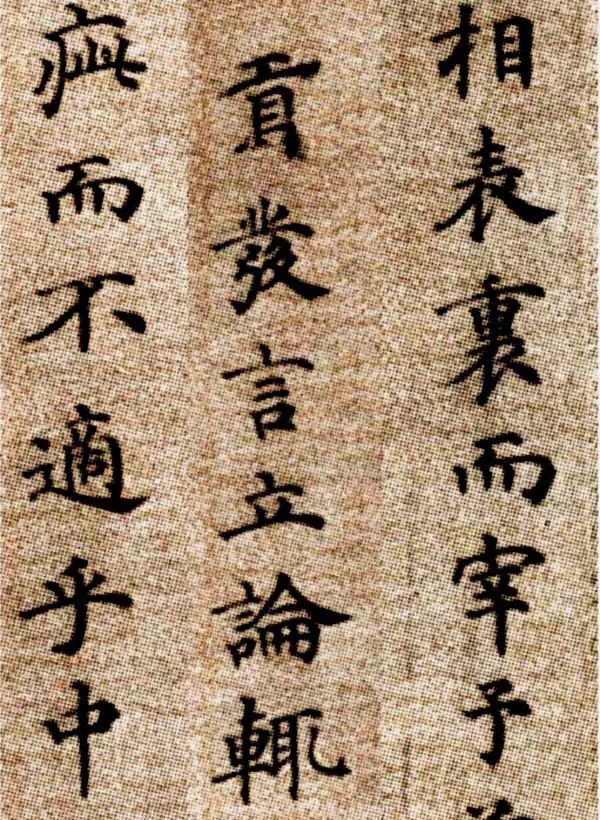 相表裏而宰予
貢發言立論輒
疵而不適乎中